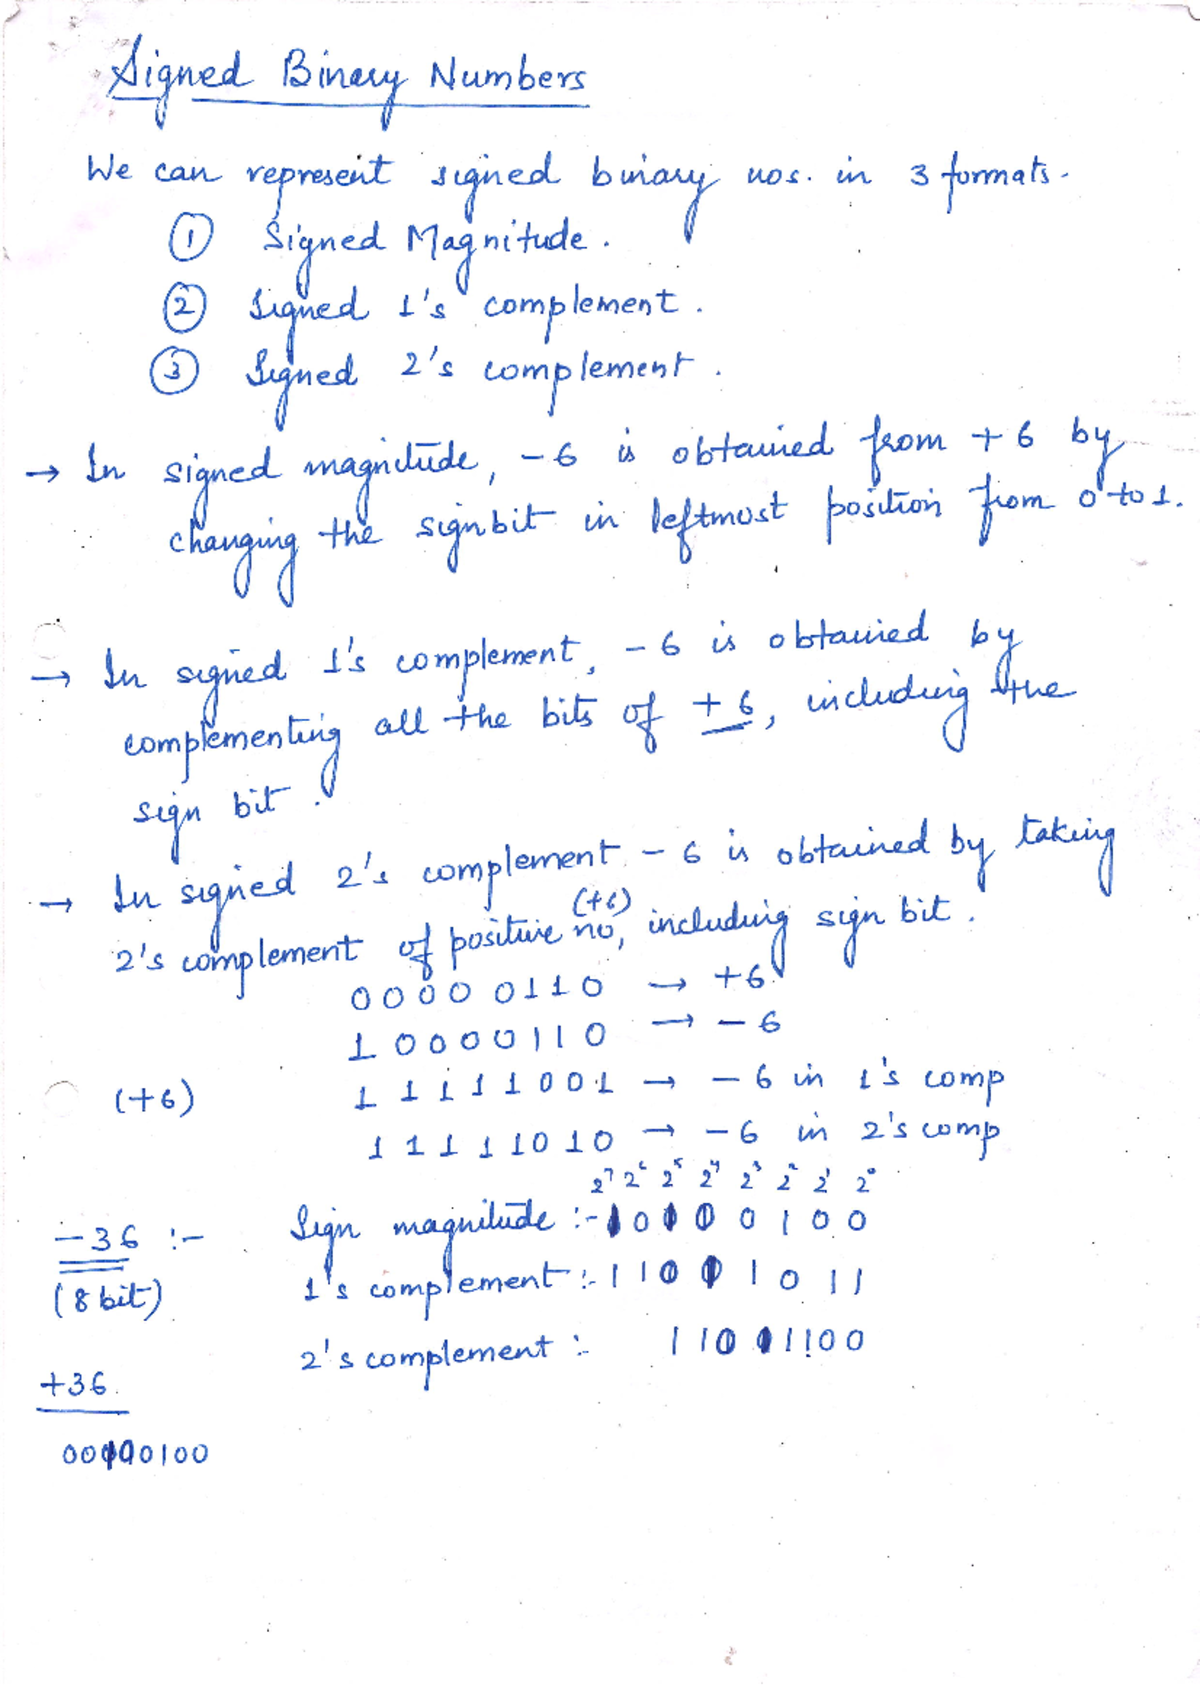 Signed Binary Numbers
We can represent signed binary nos. in 3 formats.
① Signed Magnitude.
② Signed 1's complement.
③ Signed 2's complement.
→ In signed magnitude, -6 is obtained from +6 by
changing the sign bit in leftmost position from 0 to 1.
→ In signed 1's complement, -6 is obtained by
complementing all the bits of +6, including the
sign bit.
→ In signed 2's complement -6 is obtained by taking
(+6)
2's complement of positive no, including sign bit.
00000110 → +6
10000110 → -6
(+6) 11111001 → -6 in 1's comp
11111010 → -6 in 2's comp
2⁷ 2⁶ 2⁵ 2⁴ 2³ 2² 2¹ 2⁰
-36 :- Sign magnitude :- 10100100
(8 bit) 1's complement :- 11011011
2's complement :- 11011100
+36
00100100